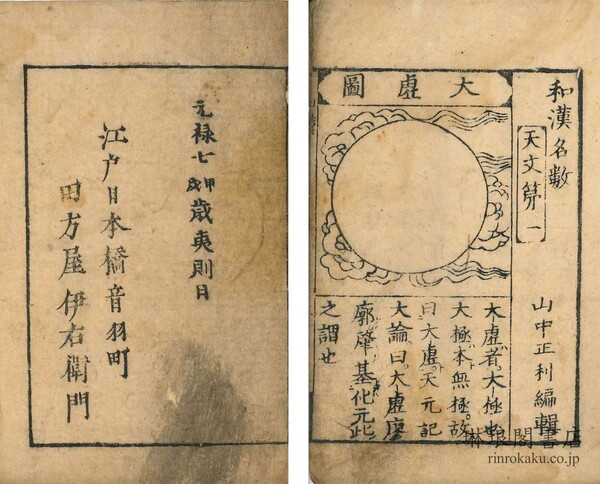 和漢名数
天文第一
山中正利編輯
大虚圖
大虚者大極也
大極本無極故
曰大虚天元記
大論曰大虚廖
廓肇基化元此
之謂也
元禄七甲戌歳夷則日
江戸日本橋音羽町
田方屋伊右衛門
琳琅閣書店
rinrokaku.co.jp